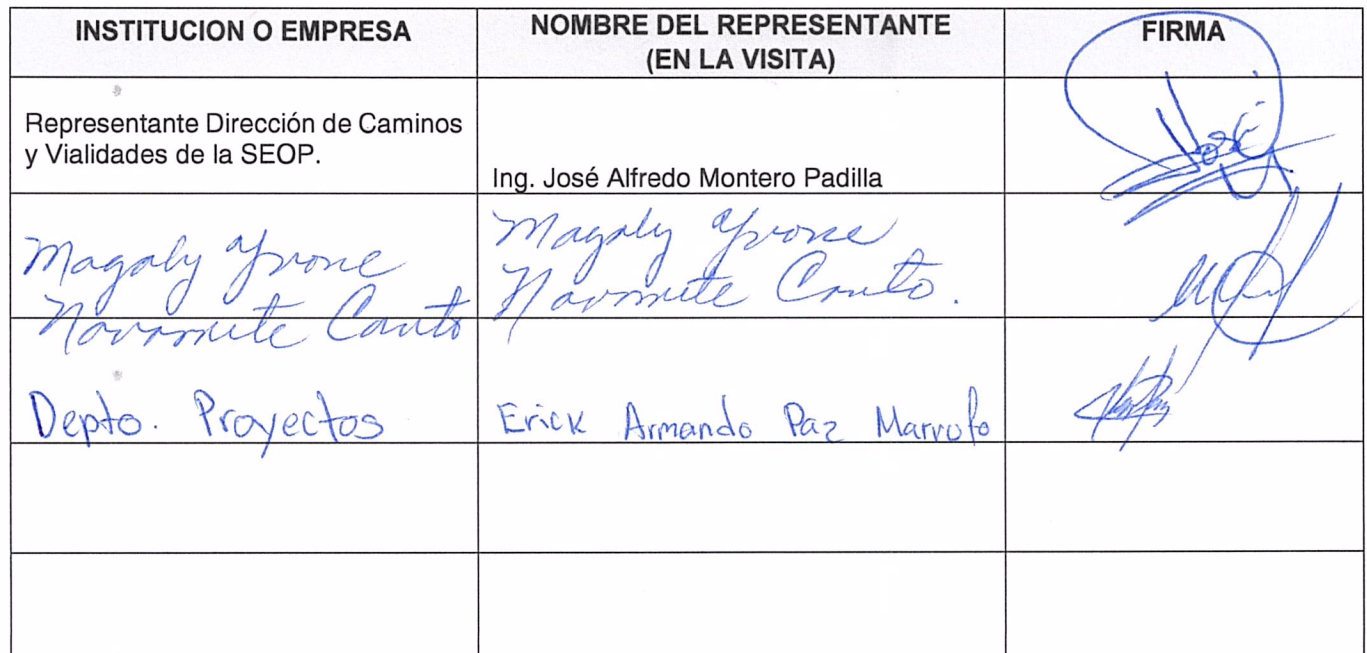 INSTITUCION O EMPRESA
NOMBRE DEL REPRESENTANTE
(EN LA VISITA)
FIRMA
Representante Dirección de Caminos
y Vialidades de la SEOP.
Ing. José Alfredo Montero Padilla
José
Magaly Yvone
Navarrete Canto
Magaly Yvone
Navarrete Canto.
Depto. Proyectos
Erick Armando Paz Marrufo